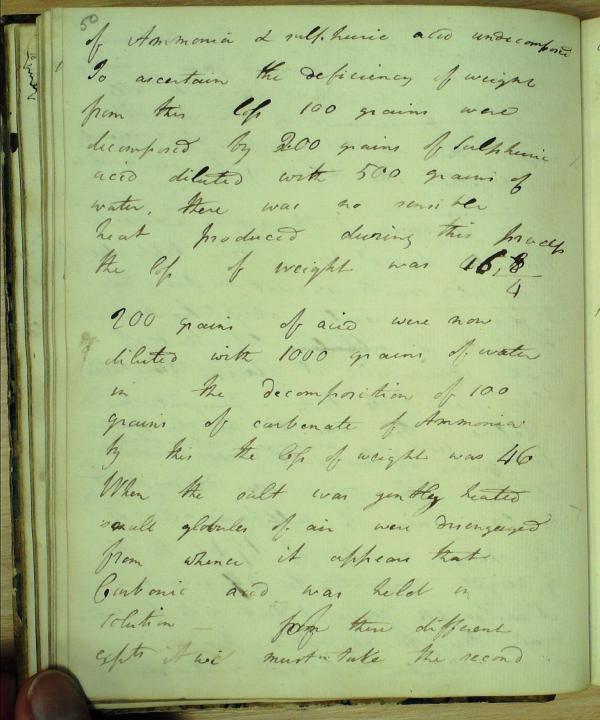 50
of Ammonia & sulphuric acid undecomposed
To ascertain the deficiency of weight
from this loss 100 grains were
decomposed by 200 grains of Sulphuric
acid diluted with 500 grains of
water, there was no sensible
heat produced during this process
the loss of weight was 46,
4
200 grains of acid were now
diluted with 1000 grains of water
in the decomposition of 100
grains of carbonate of Ammonia
by this the loss of weight was 46
When the salt was gently heated
small globules of air were disengaged
from whence it appears that
Carbonic acid was held in
solution — from these different
expts we must take the second